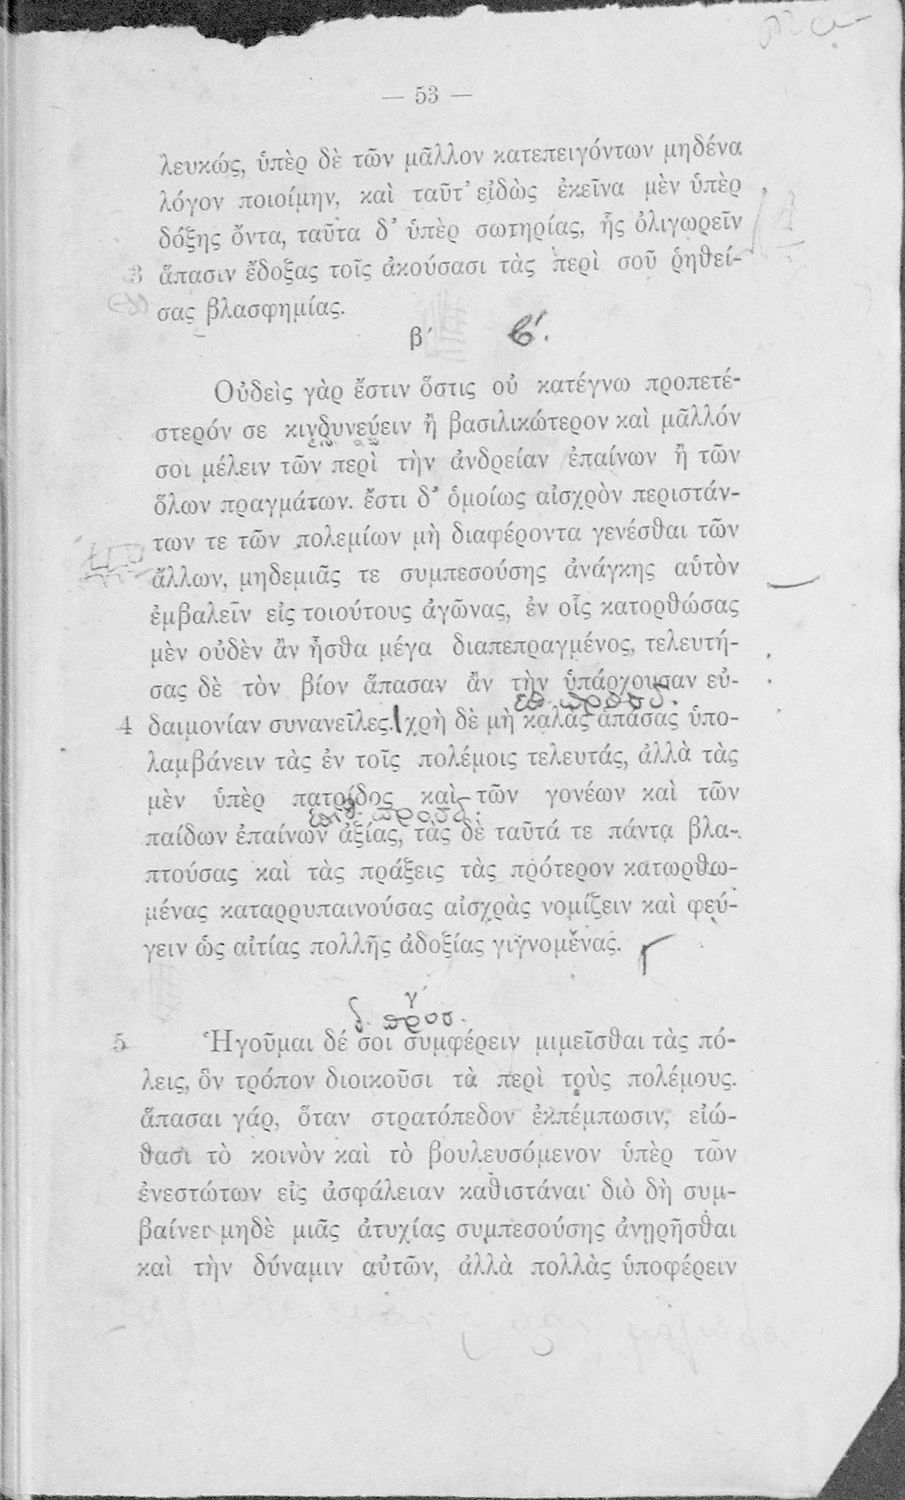 — 53 —
λευκώς, ὑπὲρ δὲ τῶν μᾶλλον κατεπειγόντων μηδένα
λόγον ποιοίμην, καὶ ταῦτ᾽ εἰδὼς ἐκεῖνα μὲν ὑπὲρ
δόξης ὄντα, ταῦτα δ᾽ ὑπὲρ σωτηρίας, ἧς ὀλιγωρεῖν
3 ἅπασιν ἔδοξας τοῖς ἀκούσασι τὰς περὶ σοῦ ῥηθεί-
σας βλασφημίας.
β΄ β΄.
Οὐδεὶς γὰρ ἔστιν ὅστις οὐ κατέγνω προπετέ-
στερόν σε κινδυνεύειν ἢ βασιλικώτερον καὶ μᾶλλόν
σοι μέλειν τῶν περὶ τὴν ἀνδρείαν ἐπαίνων ἢ τῶν
ὅλων πραγμάτων. ἔστι δ᾽ ὁμοίως αἰσχρὸν περιστάν-
των τε τῶν πολεμίων μὴ διαφέροντα γενέσθαι τῶν
ἄλλων, μηδεμιᾶς τε συμπεσούσης ἀνάγκης αὑτὸν
ἐμβαλεῖν εἰς τοιούτους ἀγῶνας, ἐν οἷς κατορθώσας
μὲν οὐδὲν ἂν ἦσθα μέγα διαπεπραγμένος, τελευτή-
σας δὲ τὸν βίον ἅπασαν ἂν τὴν ὑπάρχουσαν εὐ-
4 δαιμονίαν συνανεῖλες. χρὴ δὲ μὴ καλὰς ἁπάσας ὑπο-
λαμβάνειν τὰς ἐν τοῖς πολέμοις τελευτάς, ἀλλὰ τὰς
μὲν ὑπὲρ πατρίδος καὶ τῶν γονέων καὶ τῶν
παίδων ἐπαίνων ἀξίας, τὰς δὲ ταῦτά τε πάντα βλα-
πτούσας καὶ τὰς πράξεις τὰς πρότερον κατωρθω-
μένας καταρρυπαινούσας αἰσχρὰς νομίζειν καὶ φεύ-
γειν ὡς αἰτίας πολλῆς ἀδοξίας γιγνομένας.
γ΄
5 Ἡγοῦμαι δέ σοι συμφέρειν μιμεῖσθαι τὰς πό-
λεις, ὃν τρόπον διοικοῦσι τὰ περὶ τοὺς πολέμους.
ἅπασαι γάρ, ὅταν στρατόπεδον ἐκπέμπωσιν, εἰώ-
θασι τὸ κοινὸν καὶ τὸ βουλευσόμενον ὑπὲρ τῶν
ἐνεστώτων εἰς ἀσφάλειαν καθιστάναι· διὸ δὴ συμ-
βαίνει μηδὲ μιᾶς ἀτυχίας συμπεσούσης ἀνῃρῆσθαι
καὶ τὴν δύναμιν αὐτῶν, ἀλλὰ πολλὰς ὑποφέρειν